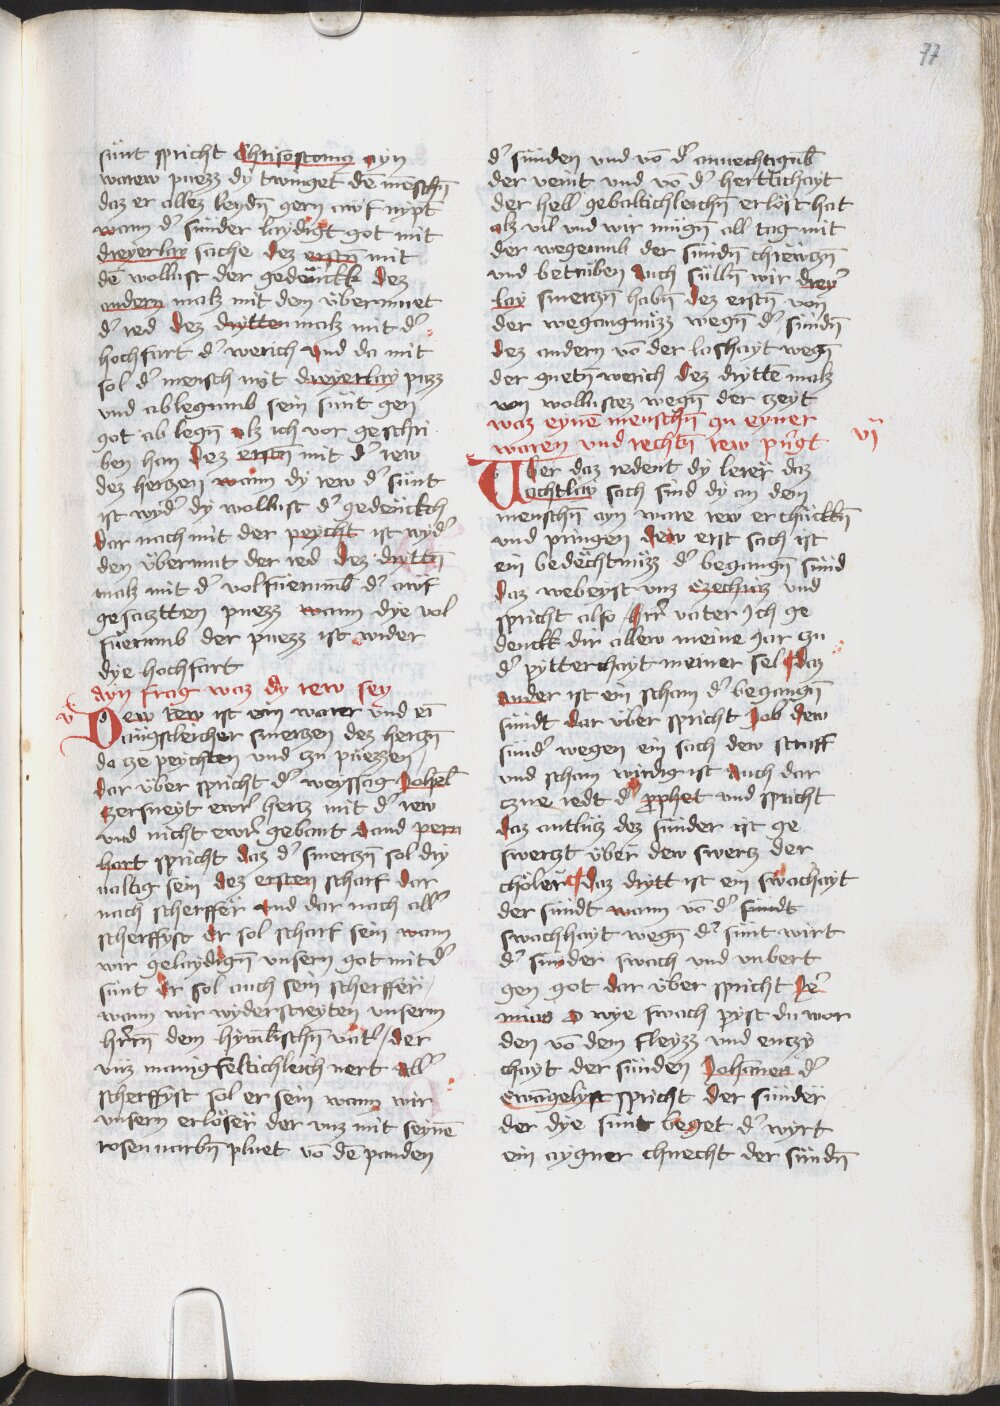 77
sünt spricht Chrisostomꝯ ayn
warew puezz dy twinget dē menschn̄
daz er allez leydn̄ gern awf nypt
wann dˀ sünder laydigt got mit
dreyerlay sache dez erstn̄ mit
dē wollust der gedenck dez
andern malz mit dem übermuet
dˀ red dez drytten malz mit dˀ
hochfart dˀ werich vnd da mit
sol dˀ mensch mit dreyerlay puzz
vnd ablegumb sein sünt gen
got ab legn̄ alz ich vor geschri
ben han dez erstn̄ mit dˀ rew
dez herczen wann dy rew dˀ sünt
ist wydˀ dy wollust dˀ gedenckch
dar nach mit der peycht ist wydˀ
den übermut der red dez drittn̄
malz mit dˀ volfuerumb dˀ awf
gesacztten puezz wann dye vol
fuerumb der puezz ist wider
dye hochfart
Ayn frag waz dy rew sey
v
Dew rew ist ein warer vnd ein
angstleicher smerczen dez herczn̄
da cze peychten vnd czu puezzen
dar über spricht dˀ weyssag Johel
Zersneyt ewrˀ hertz mit dˀ rew
vnd nicht ewrˀ gebant Sand pern
hart spricht daz dˀ smerczn̄ sol dry
ualtig sein dez ersten scharf dar
nach scherffer vnd dar nach allˀ
scherffyst Er sol scharf sein wann
wir gelaydign̄ vnsern got mit dˀ
sünt Er sol auch sein scherffer
wann wir wyderstreyten vnserm
hrˀrn̄ dem hymlischn̄ vatˀ der
vnz manigfeltichleich nert Allˀ
scherffyst sol er sein wann wir
vnsern erlöser der vnz mit seynē
rosenuarbn̄ pluet vō dē panden
dˀ sünden vnd vō dˀ anuechtigumb
der veint vnd vō dˀ hertlichayt
der hell gebaltichleichn̄ erlöst hat
alz vil vnd wir mügn̄ all tag mit
der wegeumb der sündn̄ chrewczn̄
vnd betrüben Auch süllen wir dreyˀ
lay smerczn̄ habn̄ dez erstn̄ von
der wegangnüzz wegn̄ dˀ sündn̄
dez andern vō der lashayt wegn̄
der guetn̄ werich dez drytten malz
von wollustez wegn̄ der czeyt
waz eynē menschn̄ czu eyner
waren vnd rechtn̄ rew pringt
vj
Aber daz redent dy lerer daz
achtlay sach sind dy an dem
menschn̄ ayn ware rew erchückn̄
vnd pringen dew erst sach ist
ein bedechtnüzz dˀ begangn̄ sünd
daz webeyst vnz Ezechiaz vnd
spricht also Hrˀr vater Ich ge
denck dir allew meine Jar czu
dˀ pytterchayt meiner sel Daz
ander ist ein scham dˀ begangn̄
sündt dar über spricht Job dew
sündˀ wegen ein sach dew straff
vnd scham wirdig ist Auch dar
czue redt dˀ prophet vnd spricht
daz antlücz dez sünder ist ge
swerczt über dew swercz der
choler Daz drytt ist ein swachayt
der sündt wann vō dˀ sündt
swachhayt wegn̄ dˀ sünt wirt
dˀ sünder swach vnd vnbert
gen got dar über spricht Jere
mias O wye swach pyst du wor
den vō dem fleyzz vnd enczy
chayt der sünden Johānes dˀ
ewāgelyst spricht der sünder
der dye sünt beget dˀ wyrt
ein aygner chnecht der sündn̄